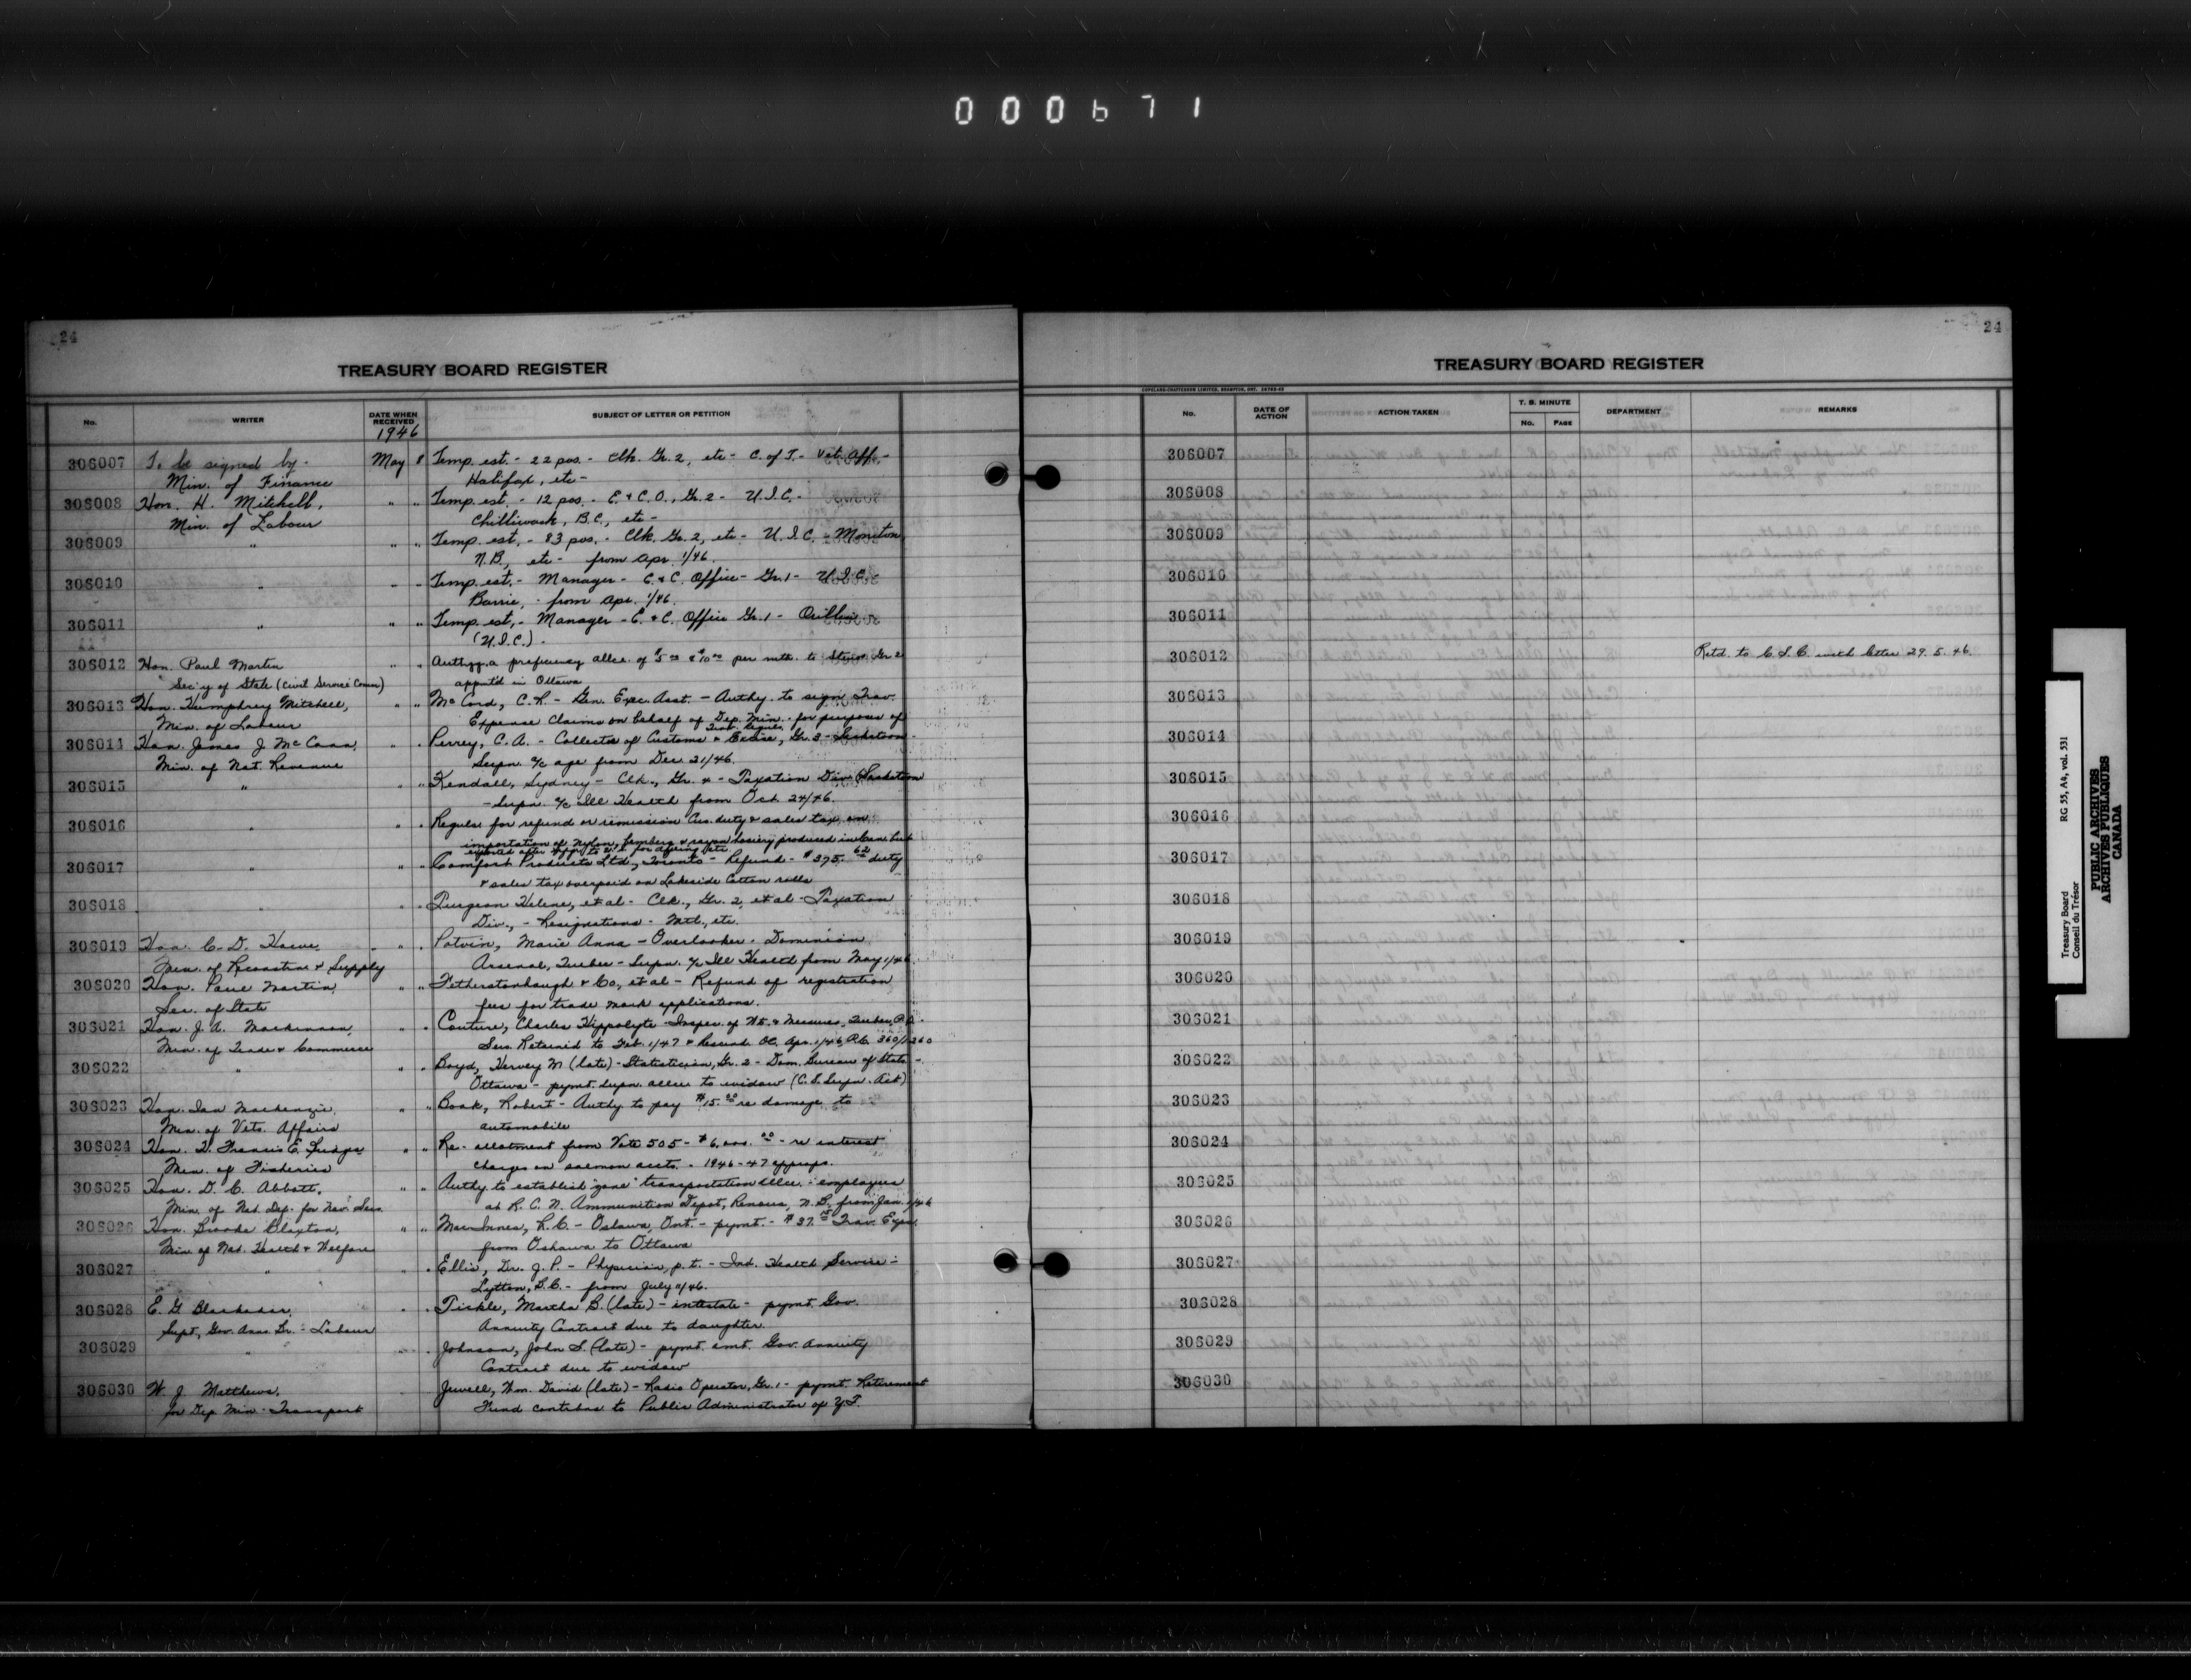 000671
24
TREASURY BOARD REGISTER
No. WRITER DATE WHEN RECEIVED SUBJECT OF LETTER OR PETITION
1946
306007 To be signed by - May 8 Temp. est. - 22 pos. - Clk. Gr. 2, etc - C. of T. - Vet. Aff. -
Min. of Finance Halifax, etc -
306008 Hon. H. Mitchell, " " Temp. est. - 12 pos. - E. & C. O., Gr. 2 - U.I.C. -
Min. of Labour Chilliwack, B.C., etc -
306009 " " " Temp. est. - 83 pos. - Clk. Gr. 2, etc - U.I.C. - Moncton,
N.B., etc - from Apr. 1/46.
306010 " " " Temp. est. - Manager - E. & C. Office - Gr. 1 - U.I.C. -
Barrie, - from Apr. 1/46.
306011 " " " Temp. est. - Manager - E. & C. Office Gr. 1 - Orillia
(U.I.C.) -
306012 Hon. Paul Martin " " Authzg. a proficiency allce. of $5.00 & $10.00 per mth. to Stenos. Gr 2
Sec'y of State (Civil Service Comm) appnt'd in Ottawa
306013 Hon. Humphrey Mitchell, " " McCord, C. R. - Gen. Exec. Asst. - Authy. to sign Trav.
Min. of Labour Expense Claims on behalf of Dep. Min. - for purposes of
Trav. Reguls.
306014 Hon. James J. McCann, " " Perrey, C. A. - Collector of Customs & Excise, Gr. 3 - Saskatoon -
Min. of Nat. Revenue Supn. a/c age from Dec 21/46.
306015 " " " Kendall, Sydney - Clk., Gr. 4 - Taxation Div. (Saskatoon
- Supn. a/c Ill Health from Oct. 24/46.
306016 " " " Reguls. for refund or remission Cus. duty & sales tax on
importation of Nylon, Bemberg & rayon hosiery produced in Can. but
exported after shipp. to U.S. for dyeing etc
306017 " " " Comfort Products Ltd., Toronto - Refund - $375.62 duty
& sales tax overpaid on Lakeside Cotton rolls
306018 " " " Turgeon Helene, et al - Clk., Gr. 2, et al - Taxation
Div., - Resignations - Mtl., etc.
306019 Hon. C. D. Howe, " " Potvin, Marie Anna - Overlooker - Dominion
Min. of Reconstrn & Supply Arsenal, Quebec - Supn. a/c Ill Health from May 1/46.
306020 Hon. Paul Martin, " " Fetherstonhaugh & Co., et al - Refund of registration
Sec. of State fees for trade mark applications.
306021 Hon. J. A. MacKinnon, " " Couture, Charles Hippolyte - Inspec. of Wt. & Measures, Quebec, P.Q. -
Min. of Trade & Commerce Serv. Retained to Feb. 1/47 & Rescind. OC. Apr. 1/46, P.C. 360/1260
306022 " " " Boyd, Hervey M (late) - Statistician, Gr. 2 - Dom. Bureau of Stats -
Ottawa - pymt. supn. allce to widow (C.S. Supn. Act)
306023 Hon. Ian Mackenzie, " " Book, Robert - Authy. to pay $15.00 re damage to
Min. of Vets. Affairs automobile
306024 Hon. H. Francis E. Bridges " " Re-allotment from Vote 505 - $6,000.00 - re interest
Min. of Fisheries charges on salmon accts. - 1946-47 approps.
306025 Hon. D. C. Abbott, " " Authy. to establish "zone" transportation allce. - employees
Min. of Nat. Def. for Nav. Serv. at R.C.N. Ammunition Depot, Renous, N.B., from Jan. 1/46
306026 Hon. Brooke Claxton, " " MacInnes, R.C. - Oshawa, Ont. - pymt. - $37. Trav. Exps.
Min of Nat. Health & Welfare from Oshawa to Ottawa
306027 " " " Ellis, Dr. J. P. - Physician, p.t. - Ind. Health Service -
Lytton, B.C. - from July 11/46.
306028 E. G. Blackadar, " " Tickle, Martha B. (late) - intestate - pymt. Gov.
Supt., Gov. Anns. Br. - Labour Annuity Contract due to daughter.
306029 " " " Johnson, John S. (late) - pymt. amt. Gov. Annuity
Contract due to widow
306030 W. J. Matthews, Jewell, Wm. David (late) - Radio Operator, Gr. 1 - pymt. Retirement
for Dep. Min - Transport Fund contribns to Public Administrator of Y.T.
24
TREASURY BOARD REGISTER
COPELAND-CHATTERSON LIMITED, BRAMPTON, ONT.
No. DATE OF ACTION ACTION TAKEN T. B. MINUTE No. PAGE DEPARTMENT REMARKS
306007
306008
306009
306010
306011
306012 Retd. to C.S.C. with letter 29.5.46.
306013
306014
306015
306016
306017
306018
306019
306020
306021
306022
306023
306024
306025
306026
306027
306028
306029
306030
Treasury Board RG 55, A4, vol. 531
Conseil du Trésor
PUBLIC ARCHIVES
ARCHIVES PUBLIQUES
CANADA